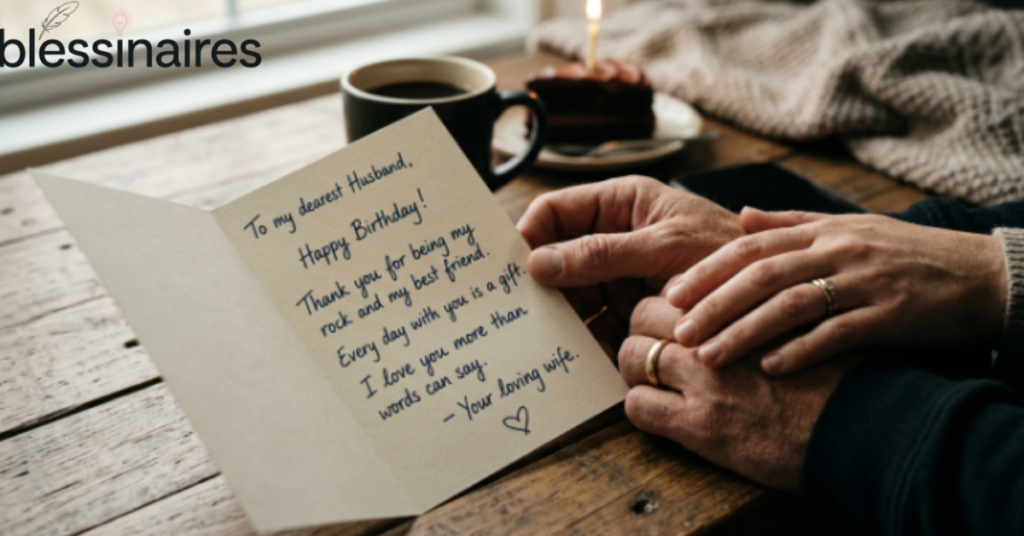 blessinaires
To my dearest Husband,
Happy Birthday!
Thank you for being my
rock and my best friend.
Every day with you is a gift.
I love you more than
words can say.
– Your loving wife.